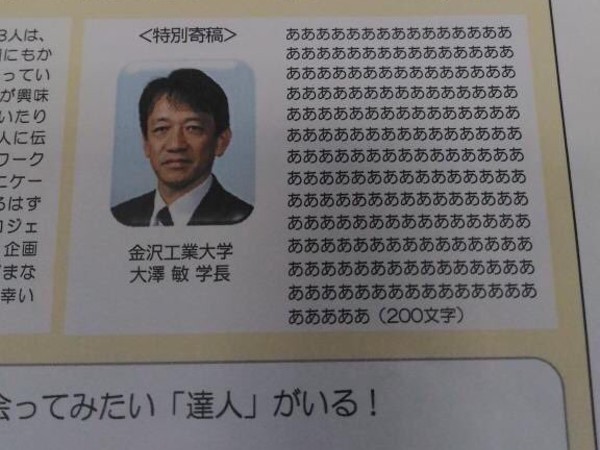 3人は、
にもか
ってい
が興味
いたり
人に伝
ワーク
にケー
るはず
ロジェ
企画
ざまな
幸い
＜特別寄稿＞
金沢工業大学
大澤 敏 学長
あああああああああああああああ
あああああああああああああああ
あああああああああああああああ
あああああああああああああああ
あああああああああああああああ
あああああああああああああああ
あああああああああああああああ
あああああああああああああああ
あああああああああああああああ
あああああああああああああああ
あああああああああああああああ
あああああああああああああああ
あああああああああああああああ
あああああ（200文字）
会ってみたい「達人」がいる！